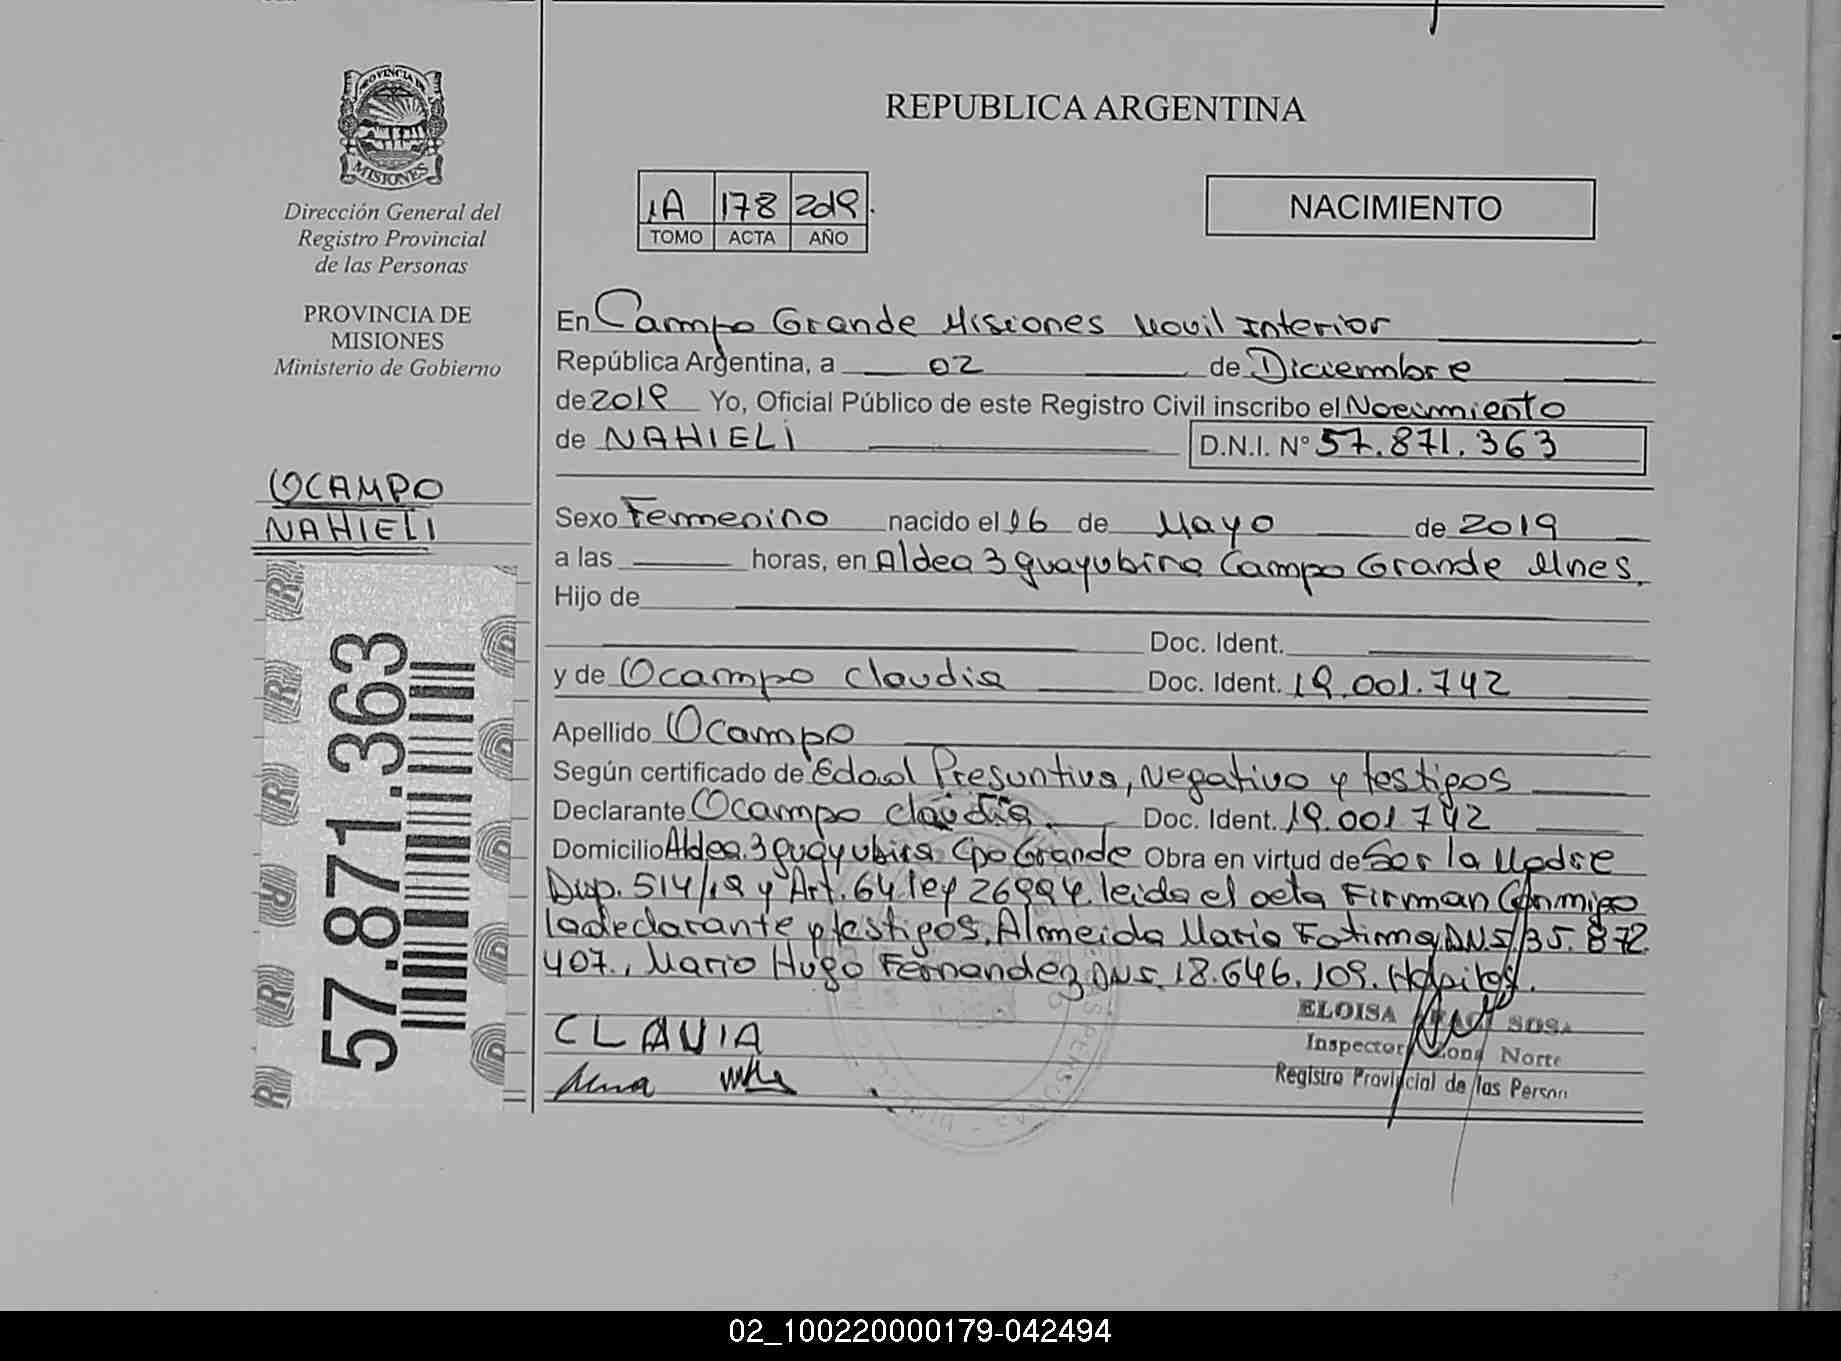 PROVINCIA DE
MISIONES
Dirección General del
Registro Provincial
de las Personas
PROVINCIA DE
MISIONES
Ministerio de Gobierno
OCAMPO
NAHIELI
57.871.363
REPUBLICA ARGENTINA
1A 178 2019
TOMO ACTA AÑO
NACIMIENTO
En Campo Grande Misiones Movil Interior
República Argentina, a 02 de Diciembre
de 2019 Yo, Oficial Público de este Registro Civil inscribo el Nacimiento
de NAHIELI D.N.I. N° 57.871.363
Sexo Femenino nacido el 16 de Mayo de 2019
a las horas, en Aldea 3 guayubira Campo Grande Mnes.
Hijo de
Doc. Ident.
y de Ocampo Claudia Doc. Ident. 19.001.742
Apellido Ocampo
Según certificado de Edad Presuntiva, Negativo y testigos
Declarante Ocampo Claudia Doc. Ident. 19.001742
Domicilio Aldea 3 guayubira Cpo Grande Obra en virtud de Ser la Madre
Disp. 514/19 y Art. 64 ley 26994. leida el acta Firman Conmigo
la declarante y testigos. Almeida Maria Fatima DNI 35.872.
407., Mario Hugo Fernandez DNI 18.646.109.
CLAUIA
ELOISA SOSA
Inspector Zona Norte
Registro Provincial de las Person
02_100220000179-042494